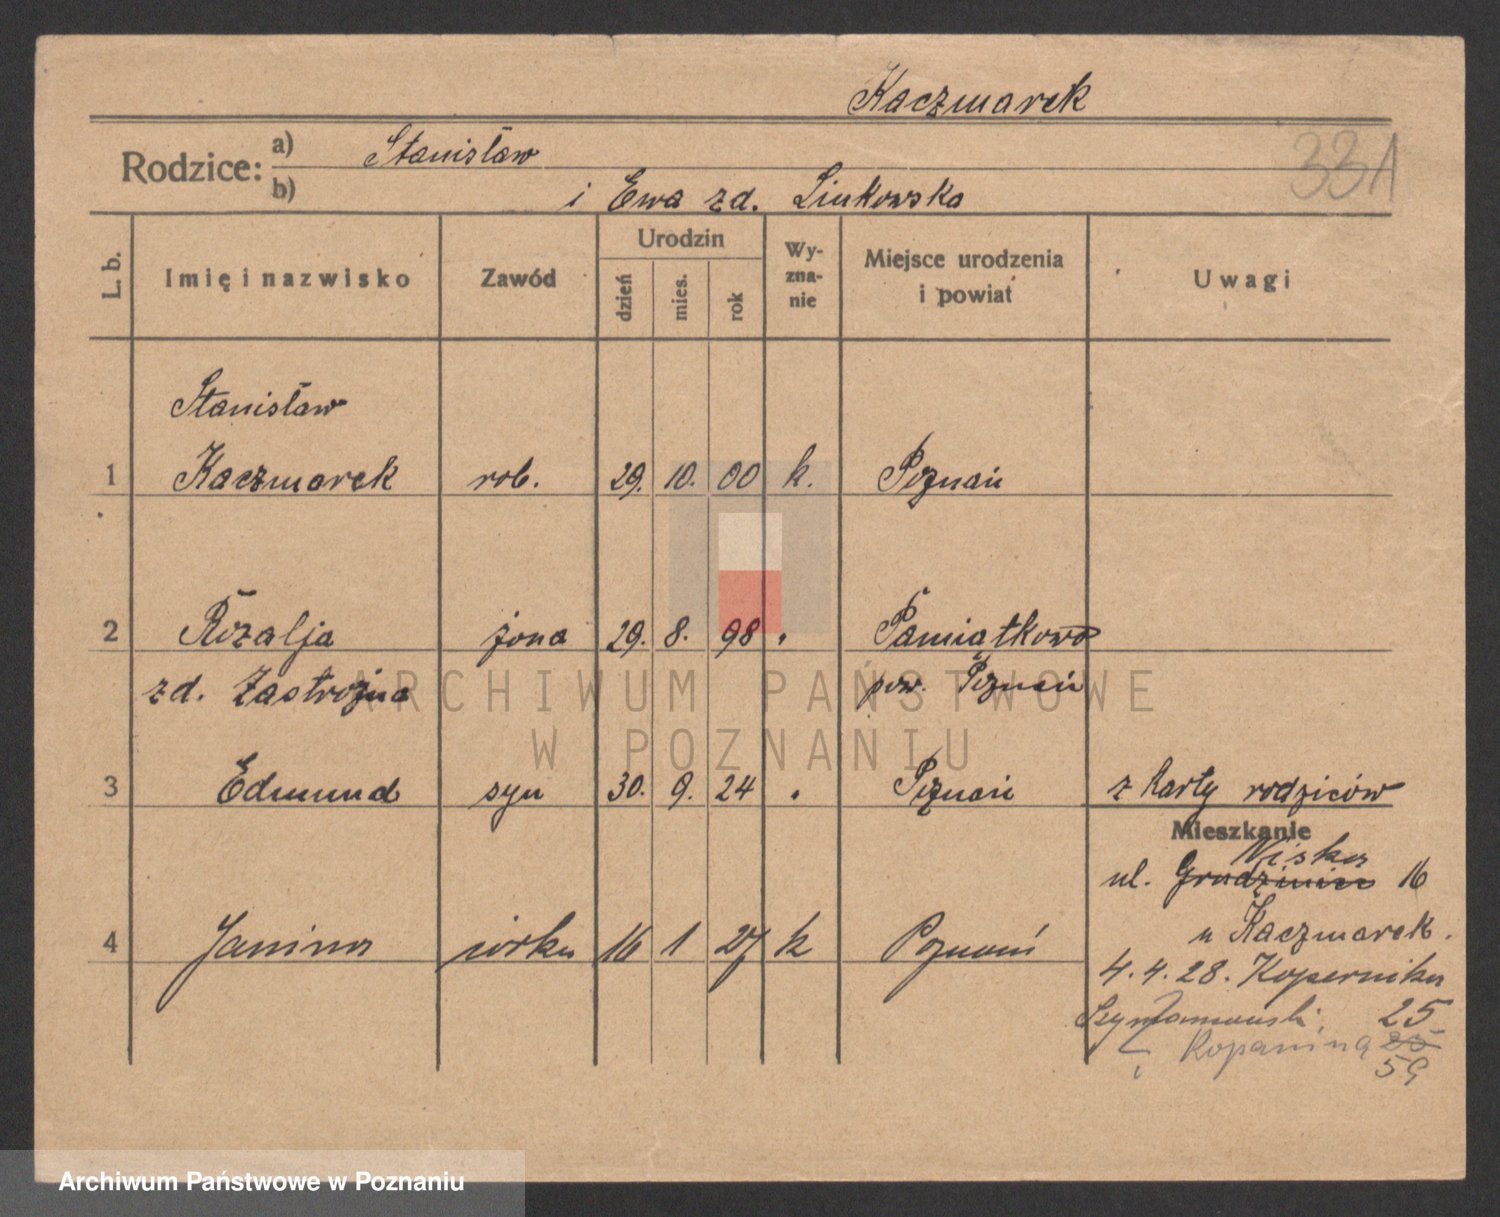 Kaczmarek
331
Rodzice: a) Stanisław
b) i Ewa zd. Linkowska
L. b. Imię i nazwisko Zawód Urodzin dzień mies. rok Wy-zna-nie Miejsce urodzenia i powiat Uwagi
Stanisław
1 Kaczmarek rob. 29. 10. 00 k. Poznań
2 Rozalja żona 29. 8. 98 " Pamiątkowo
zd. Zastrożna pow. Poznań
3 Edmund syn 30. 9. 24 " Poznań z karty rodziców
Mieszkanie
Niska
ul. 16
u Kaczmarek.
4 Janina córka 16 1 27 k Poznań
4.4.28. Kopernika
Szymanowski, 25
Kopanina 25
59
ARCHIWUM PAŃSTWOWE
W POZNANIU
Archiwum Państwowe w Poznaniu